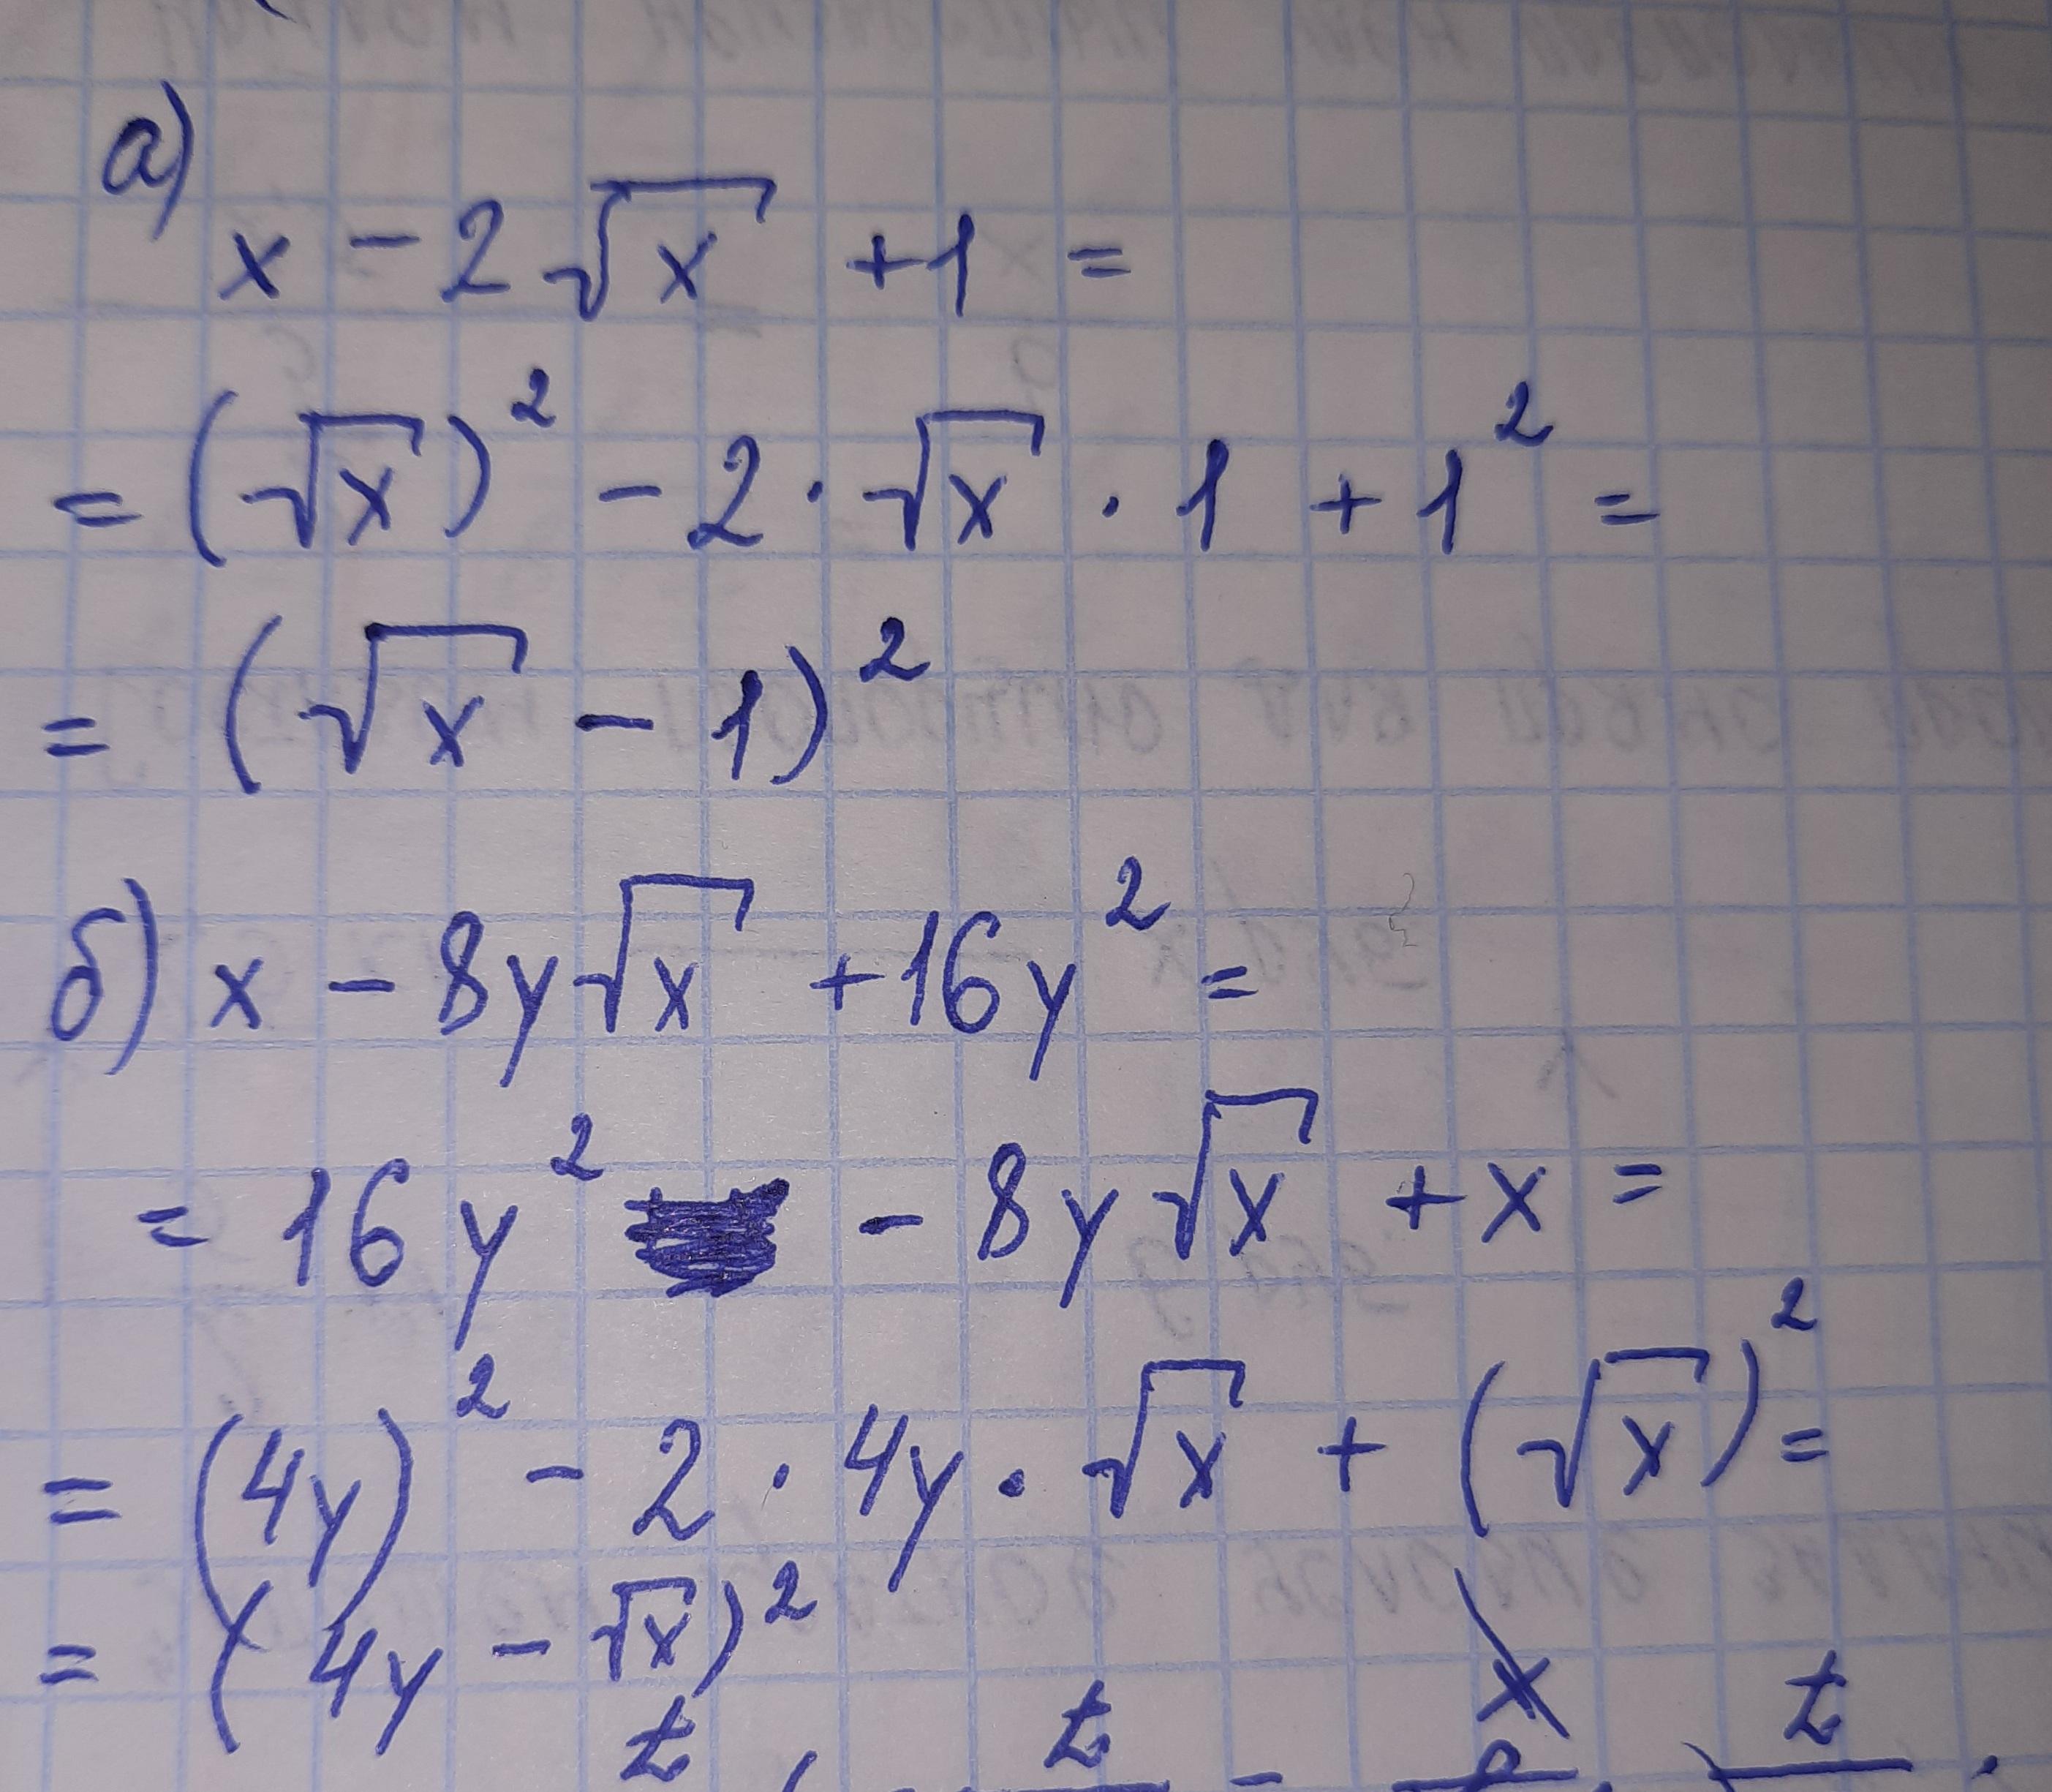 а)
x - 2√x + 1 =
= (√x)² - 2 · √x · 1 + 1² =
= (√x - 1)²
б) x - 8y√x + 16y² =
= 16y² - 8y√x + x =
= (4y)² - 2 · 4y · √x + (√x)² =
= (4y - √x)²
t t x t